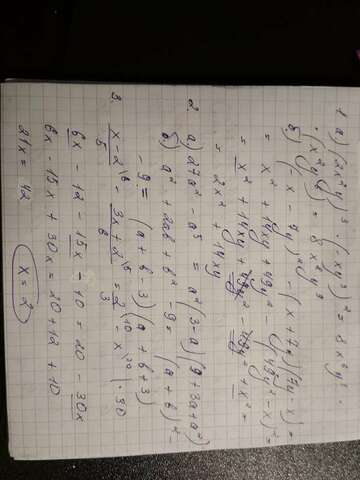 1. а) (2x²y)³ · (-xy³)² = 8x⁶y³ ·
· (x²y⁶) = 8x⁸y⁹
б) (-x - 7y)² - (x + 7y)(7y - x) =
= x² + 14xy + 49y² - (49y² - x²) =
= x² + 14xy + 49y² - 49y² + x² =
= 2x² + 14xy
2. а) 27a² - a⁵ = a²(3 - a)(9 + 3a + a²)
б) a² + 2ab + b² - 9 = (a + b)² -
- 9 = (a + b - 3)(a + b + 3)
3. (x - 2)/5 \6 - (3x + 2)/6 \5 = 2/3 \10 - x \30 | · 30
6x - 12 - 15x - 10 = 20 - 30x
6x - 15x + 30x = 20 + 12 + 10
21x = 42
x = 2